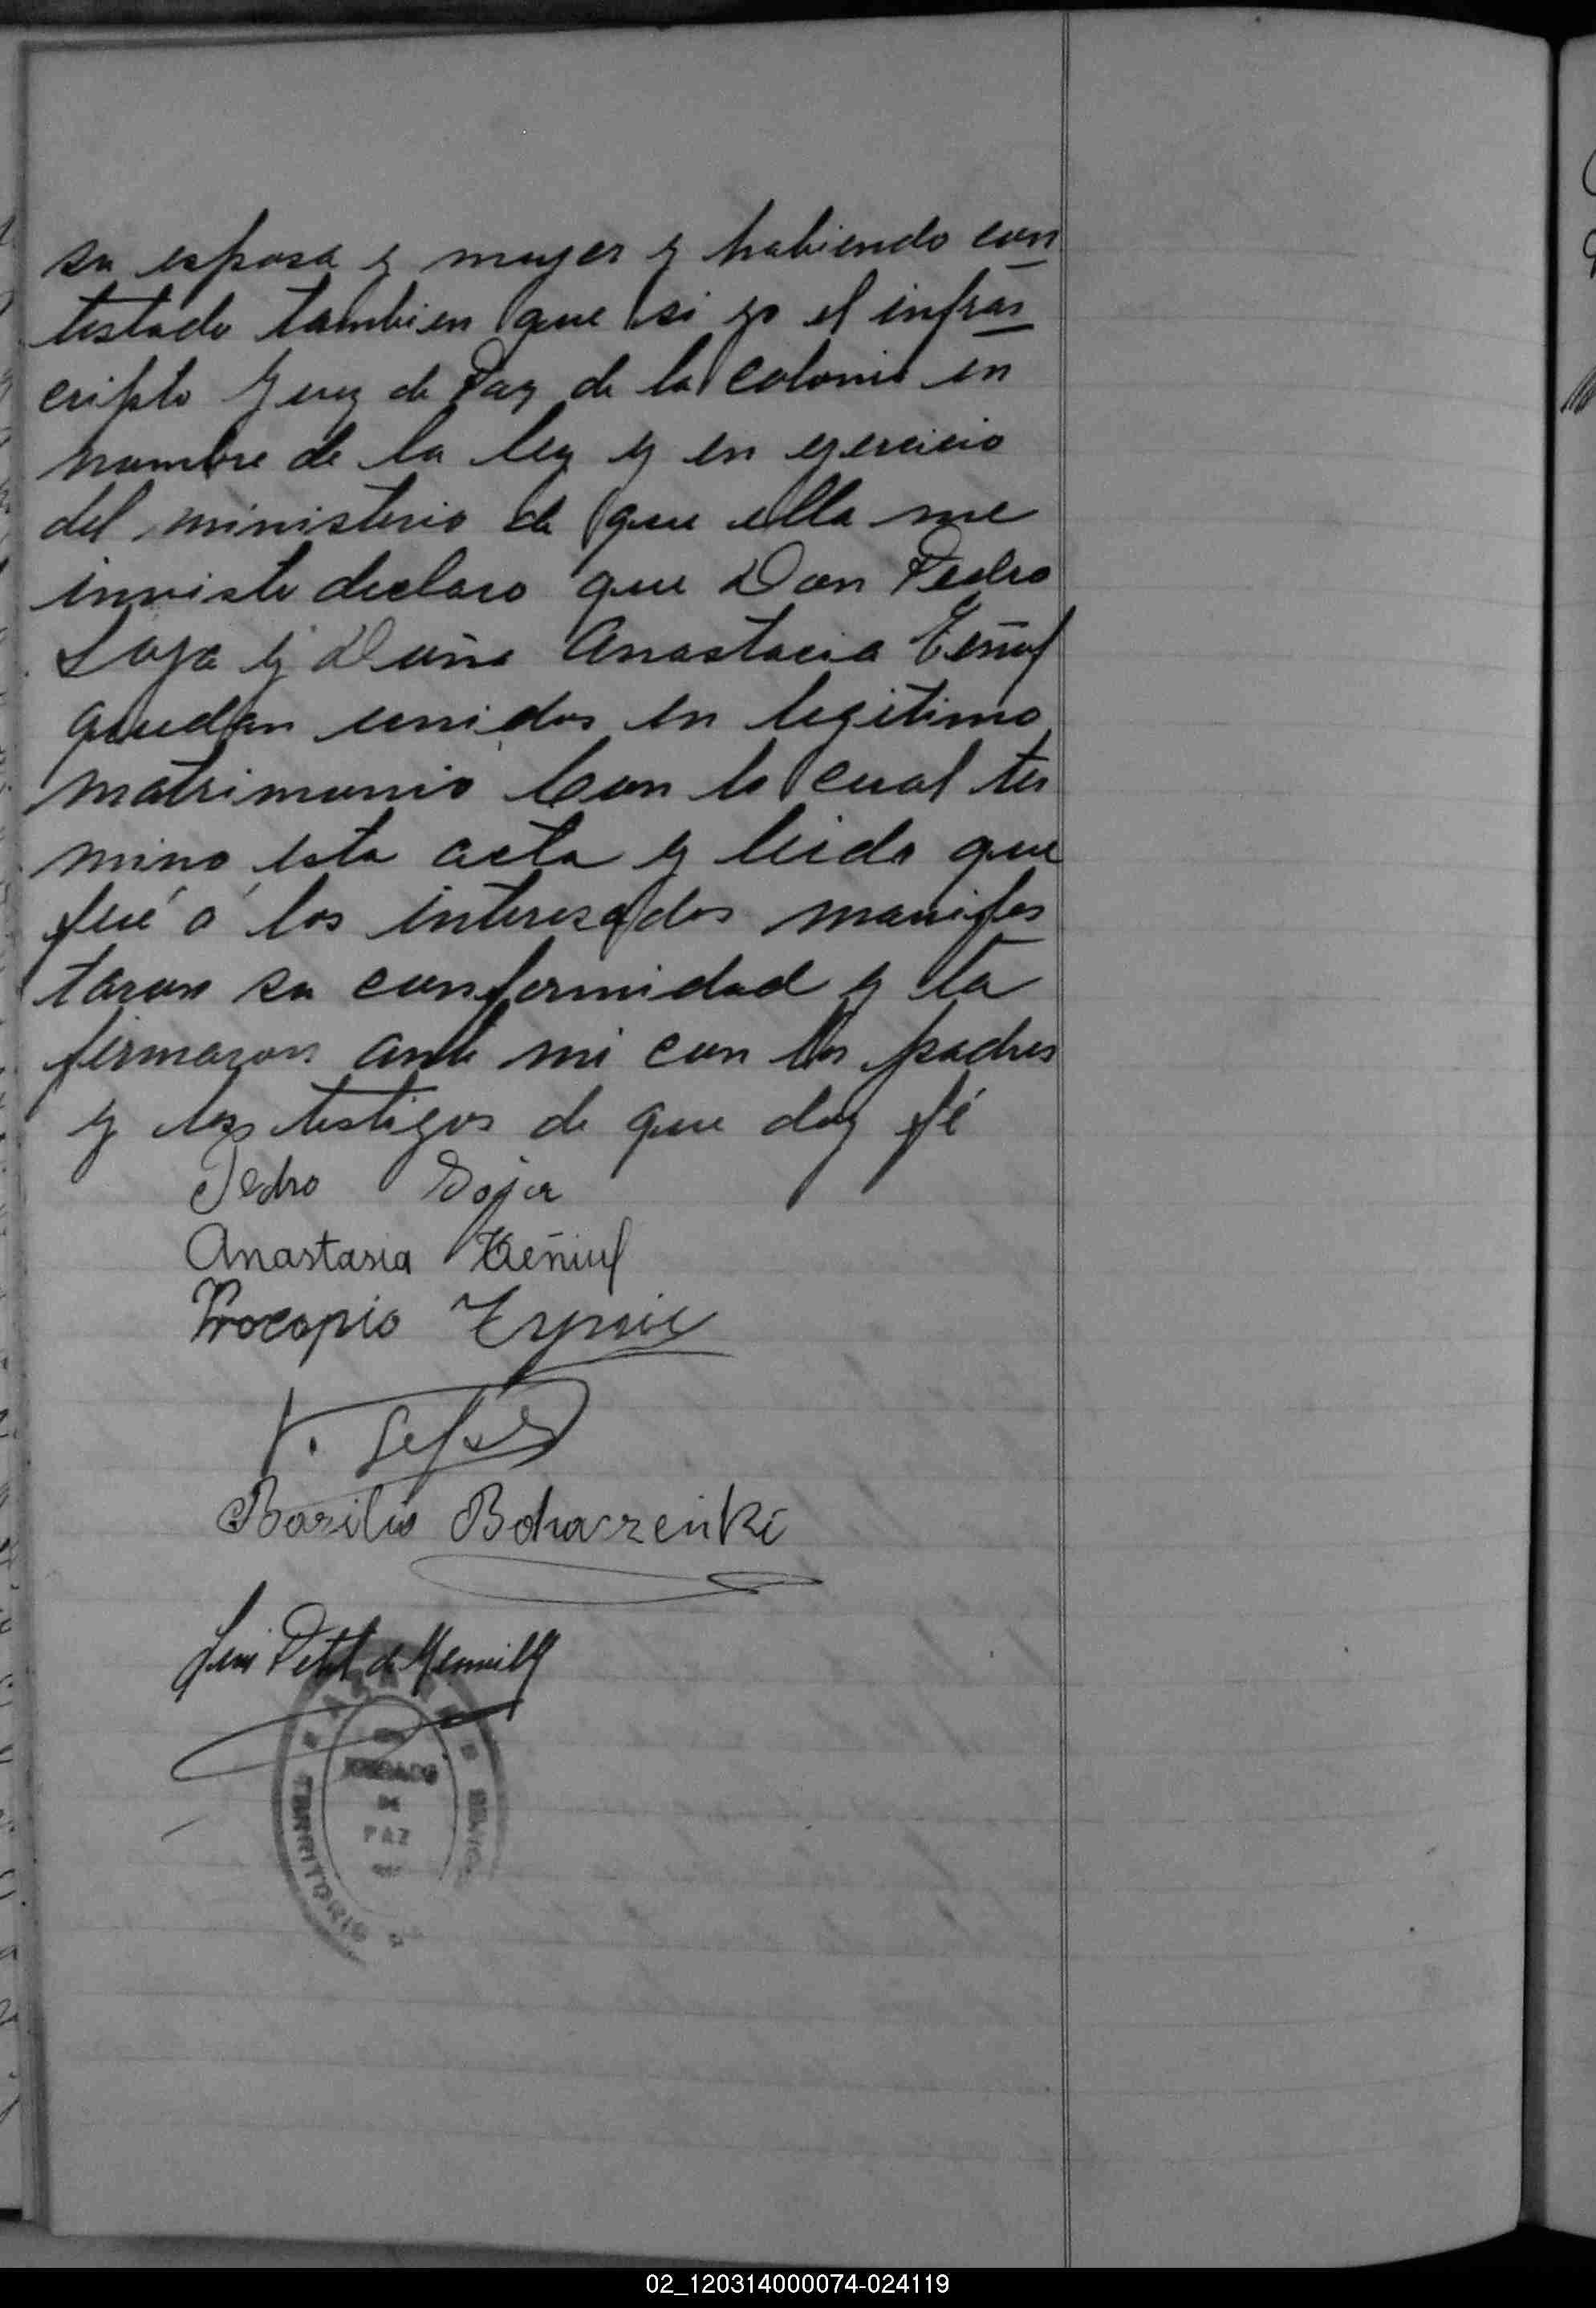 su esposa y mujer y habiendo con
testado tambien que si yo el infras
cripto Juez de Paz de la colonia en
nombre de la ley y en ejercicio
del ministerio de que ella me
inviste declaro que Don Pedro
Soja y Doña Anastacia Teñuf
quedan unidos en legitimo
matrimonio Con lo cual ter
mino esta acta y leida que
fué á los interesados manifes
taron su conformidad y la
firmaron ante mi con los padres
y los testigos de que doy fé
Pedro Soja
Anastasia
Procopio
Basilio
Luis Petit de Meurville
JUZGADO
DE
PAZ
TERRITORIO
02_120314000074-024119